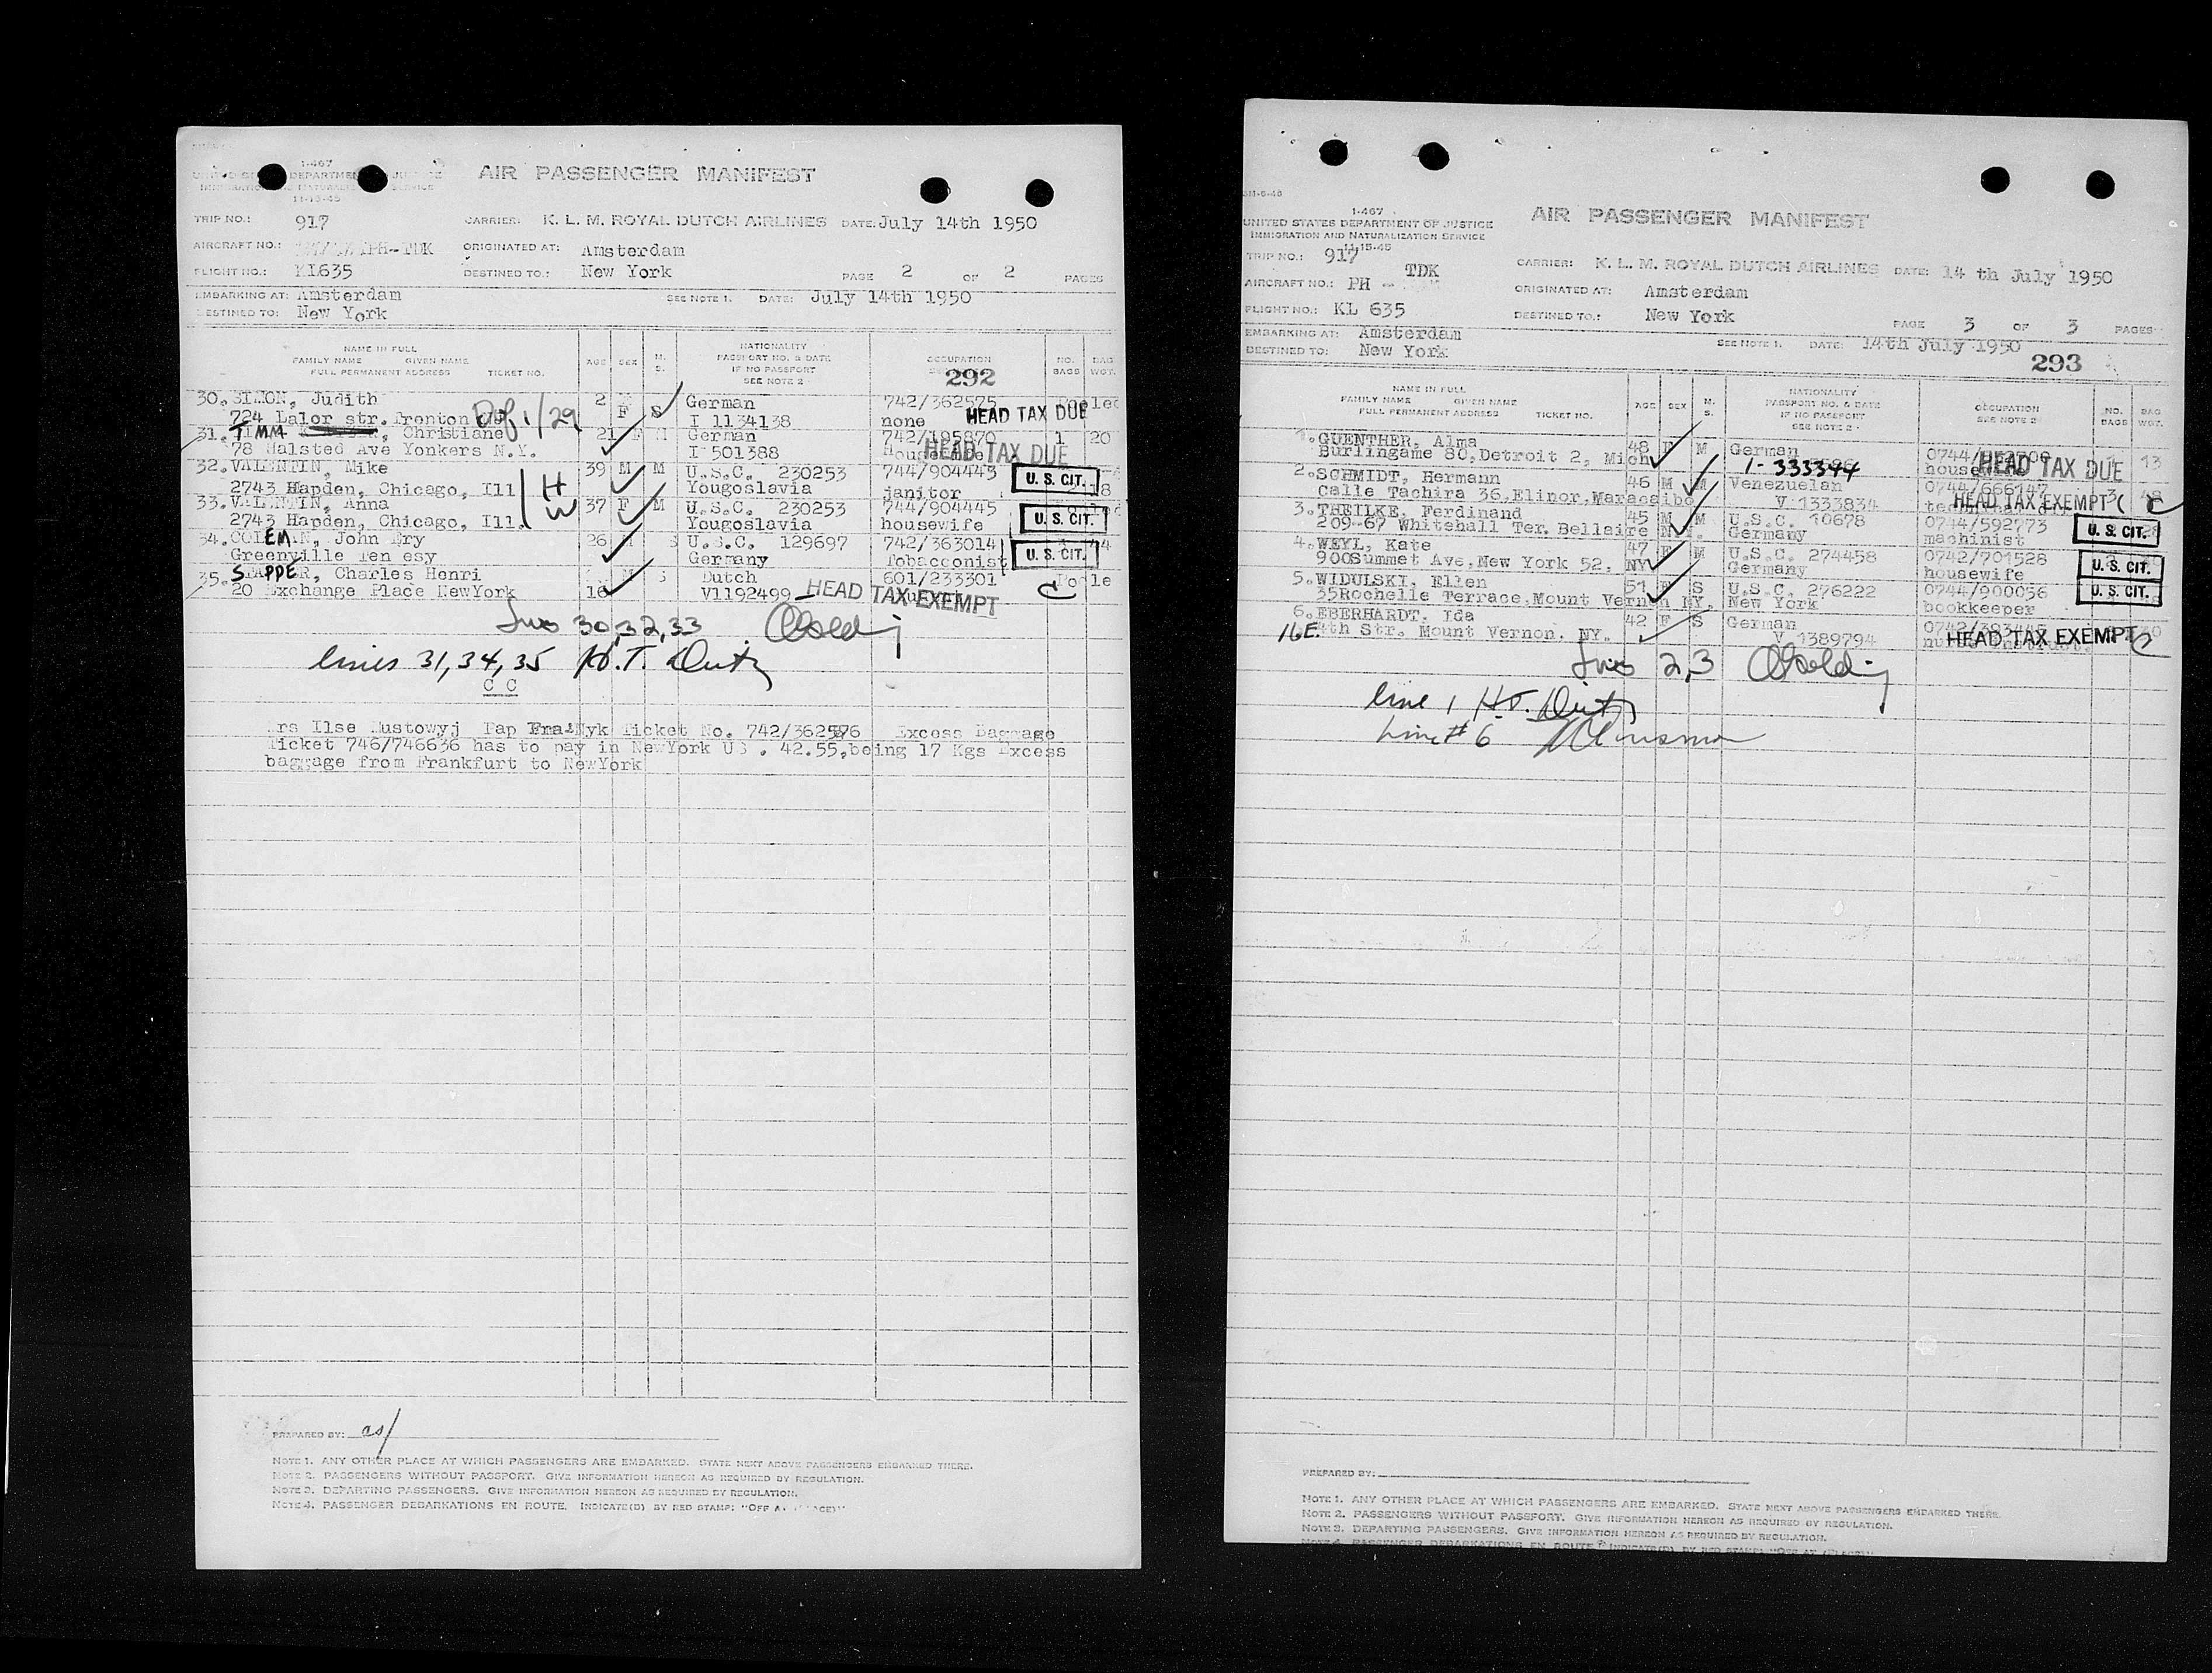 1-467
11-15-45
AIR PASSENGER MANIFEST
TRIP NO.: 917 CARRIER: K. L. M. ROYAL DUTCH AIRLINES DATE: July 14th 1950
AIRCRAFT NO.: PH-TDK ORIGINATED AT: Amsterdam
FLIGHT NO.: KL635 DESTINED TO.: New York PAGE 2 OF 2 PAGES
EMBARKING AT: Amsterdam SEE NOTE 1. DATE: July 14th 1950
DESTINED TO: New York
NAME IN FULL
FAMILY NAME GIVEN NAME
FULL PERMANENT ADDRESS TICKET NO.
AGE SEX M. S.
NATIONALITY
PASSPORT NO. & DATE
IF NO PASSPORT
SEE NOTE 2
OCCUPATION
292
NO. BAGS BAG WGT.
30. SIMON, Judith 2 F S German 742/362575
724 Lalor str. Trenton I 1134138 none HEAD TAX DUE
31. TIMM, Christiane 21 F M German 742/195870 1 20
78 Halsted Ave Yonkers N.Y. I 501388 HEAD TAX DUE
32. VALENTIN, Mike 39 M M U.S.C. 230253 744/904443
2743 Hapden, Chicago, Ill H Yougoslavia janitor U. S. CIT. 18
33. VALENTIN, Anna 37 F M U.S.C. 230253 744/904445
2743 Hapden, Chicago, Ill. W Yougoslavia housewife U. S. CIT.
34. COLEMAN, John Ery 26 M S U.S.C. 129697 742/363014
Greenville Ten esy Germany Tobacconist U. S. CIT.
35. STAPPER, Charles Henri 16 M S Dutch 601/233301
20 Exchange Place NewYork V1192499 HEAD TAX EXEMPT
30,32,33
lines 31,34,35 H.T.
C C
rs Ilse Mustowyj Pap Fra-Nyk Ticket No. 742/362576 Excess Baggage
Ticket 746/746636 has to pay in NewYork US . 42.55,being 17 Kgs Excess
baggage from Frankfurt to NewYork
PREPARED BY: as/
NOTE 1. ANY OTHER PLACE AT WHICH PASSENGERS ARE EMBARKED. STATE NEXT ABOVE PASSENGERS EMBARKED THERE.
NOTE 2. PASSENGERS WITHOUT PASSPORT. GIVE INFORMATION HEREON AS REQUIRED BY REGULATION.
NOTE 3. DEPARTING PASSENGERS. GIVE INFORMATION HEREON AS REQUIRED BY REGULATION.
NOTE 4. PASSENGER DEBARKATIONS EN ROUTE. INDICATE(D) BY RED STAMP: "OFF
1-467
UNITED STATES DEPARTMENT OF JUSTICE
IMMIGRATION AND NATURALIZATION SERVICE
11-15-45
AIR PASSENGER MANIFEST
TRIP NO.: 917 CARRIER: K. L. M. ROYAL DUTCH AIRLINES DATE: 14 th July 1950
AIRCRAFT NO.: PH - TDK ORIGINATED AT: Amsterdam
FLIGHT NO.: KL 635 DESTINED TO.: New York PAGE 3 OF 3 PAGES
EMBARKING AT: Amsterdam SEE NOTE 1. DATE: 14th July 1950
DESTINED TO: New York
293
NAME IN FULL
FAMILY NAME GIVEN NAME
FULL PERMANENT ADDRESS TICKET NO.
AGE SEX M. S.
NATIONALITY
PASSPORT NO. & DATE
IF NO PASSPORT
SEE NOTE 2
OCCUPATION
SEE NOTE 2
NO. BAGS BAG WGT.
1. GUENTHER, Alma 48 F M German
Burlingame 80,Detroit 2, Mich 1-333344 HEAD TAX DUE 13
2. SCHMIDT, Hermann 46 M M Venezuelan 0744/666147
calle Tachira 36,Elinor,Maracaibo V 1333834 HEAD TAX EXEMPT
3. THEILKE, Ferdinand 45 M M U.S.C. 10678 0744/592773
209-67 Whitehall Ter. Bellaire N.Y. Germany machinist U. S. CIT.
4. WEYL, Kate 47 F M U.S.C. 274458 0742/701528
900Summet Ave,New York 52, NY Germany housewife U. S. CIT.
5. WIDULSKI, Ellen 51 F S U.S.C. 276222 0744/900056
35Rochelle Terrace,Mount Vernon NY. New York bookkeeper U. S. CIT.
6. EBERHARDT, Ida 42 F S German
16E. 4th Str. Mount Vernon. NY. V 1389794 HEAD TAX EXEMPT
2,3
line 1 H.T.
Line # 6
PREPARED BY:
NOTE 1. ANY OTHER PLACE AT WHICH PASSENGERS ARE EMBARKED. STATE NEXT ABOVE PASSENGERS EMBARKED THERE.
NOTE 2. PASSENGERS WITHOUT PASSPORT. GIVE INFORMATION HEREON AS REQUIRED BY REGULATION.
NOTE 3. DEPARTING PASSENGERS. GIVE INFORMATION HEREON AS REQUIRED BY REGULATION.